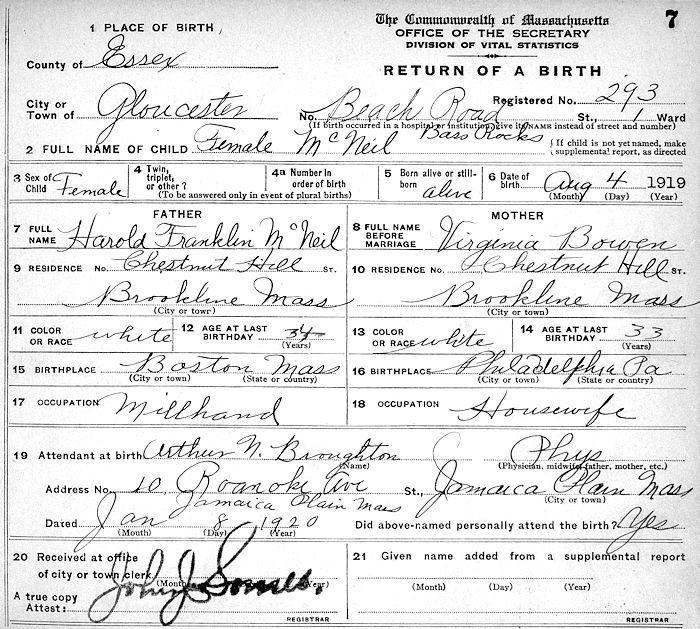 7
The Commonwealth of Massachusetts
OFFICE OF THE SECRETARY
DIVISION OF VITAL STATISTICS
RETURN OF A BIRTH
1 PLACE OF BIRTH
County of Essex
Registered No. 293
City or Town of Gloucester No. Beach Road St., 1 Ward
(If birth occurred in a hospital or institution, give its NAME instead of street and number)
Bass Rocks
2 FULL NAME OF CHILD Female McNeil { If child is not yet named, make supplemental report, as directed
3 Sex of Child Female 4 Twin, triplet, or other? 4a Number in order of birth 5 Born alive or still-born alive 6 Date of birth Aug 4 1919
(To be answered only in event of plural births) (Month) (Day) (Year)
FATHER MOTHER
7 FULL NAME Harold Franklin McNeil 8 FULL NAME BEFORE MARRIAGE Virginia Bowen
9 RESIDENCE No. Chestnut Hill ST. 10 RESIDENCE No. Chestnut Hill St.
Brookline Mass Brookline Mass
(City or town) (City or town)
11 COLOR OR RACE white 12 AGE AT LAST BIRTHDAY 34 (Years) 13 COLOR OR RACE white 14 AGE AT LAST BIRTHDAY 33 (Years)
15 BIRTHPLACE Boston Mass 16 BIRTHPLACE Philadelphia Pa
(City or town) (State or country) (City or town) (State or country)
17 OCCUPATION Millhand 18 OCCUPATION Housewife
19 Attendant at birth Arthur N. Broughton Phys
(Name) (Physician, midwife, father, mother, etc.)
Address No. 10, Roanoke Ave St., Jamaica Plain Mass
(City or town)
Jamaica Plain Mass
Dated Jan 8 1920 Did above-named personally attend the birth? Yes
(Month) (Day) (Year)
20 Received at office of city or town clerk 21 Given name added from a supplemental report
(Month) (Year) (Month) (Day) (Year)
A true copy
Attest: John J Somes.
REGISTRAR REGISTRAR